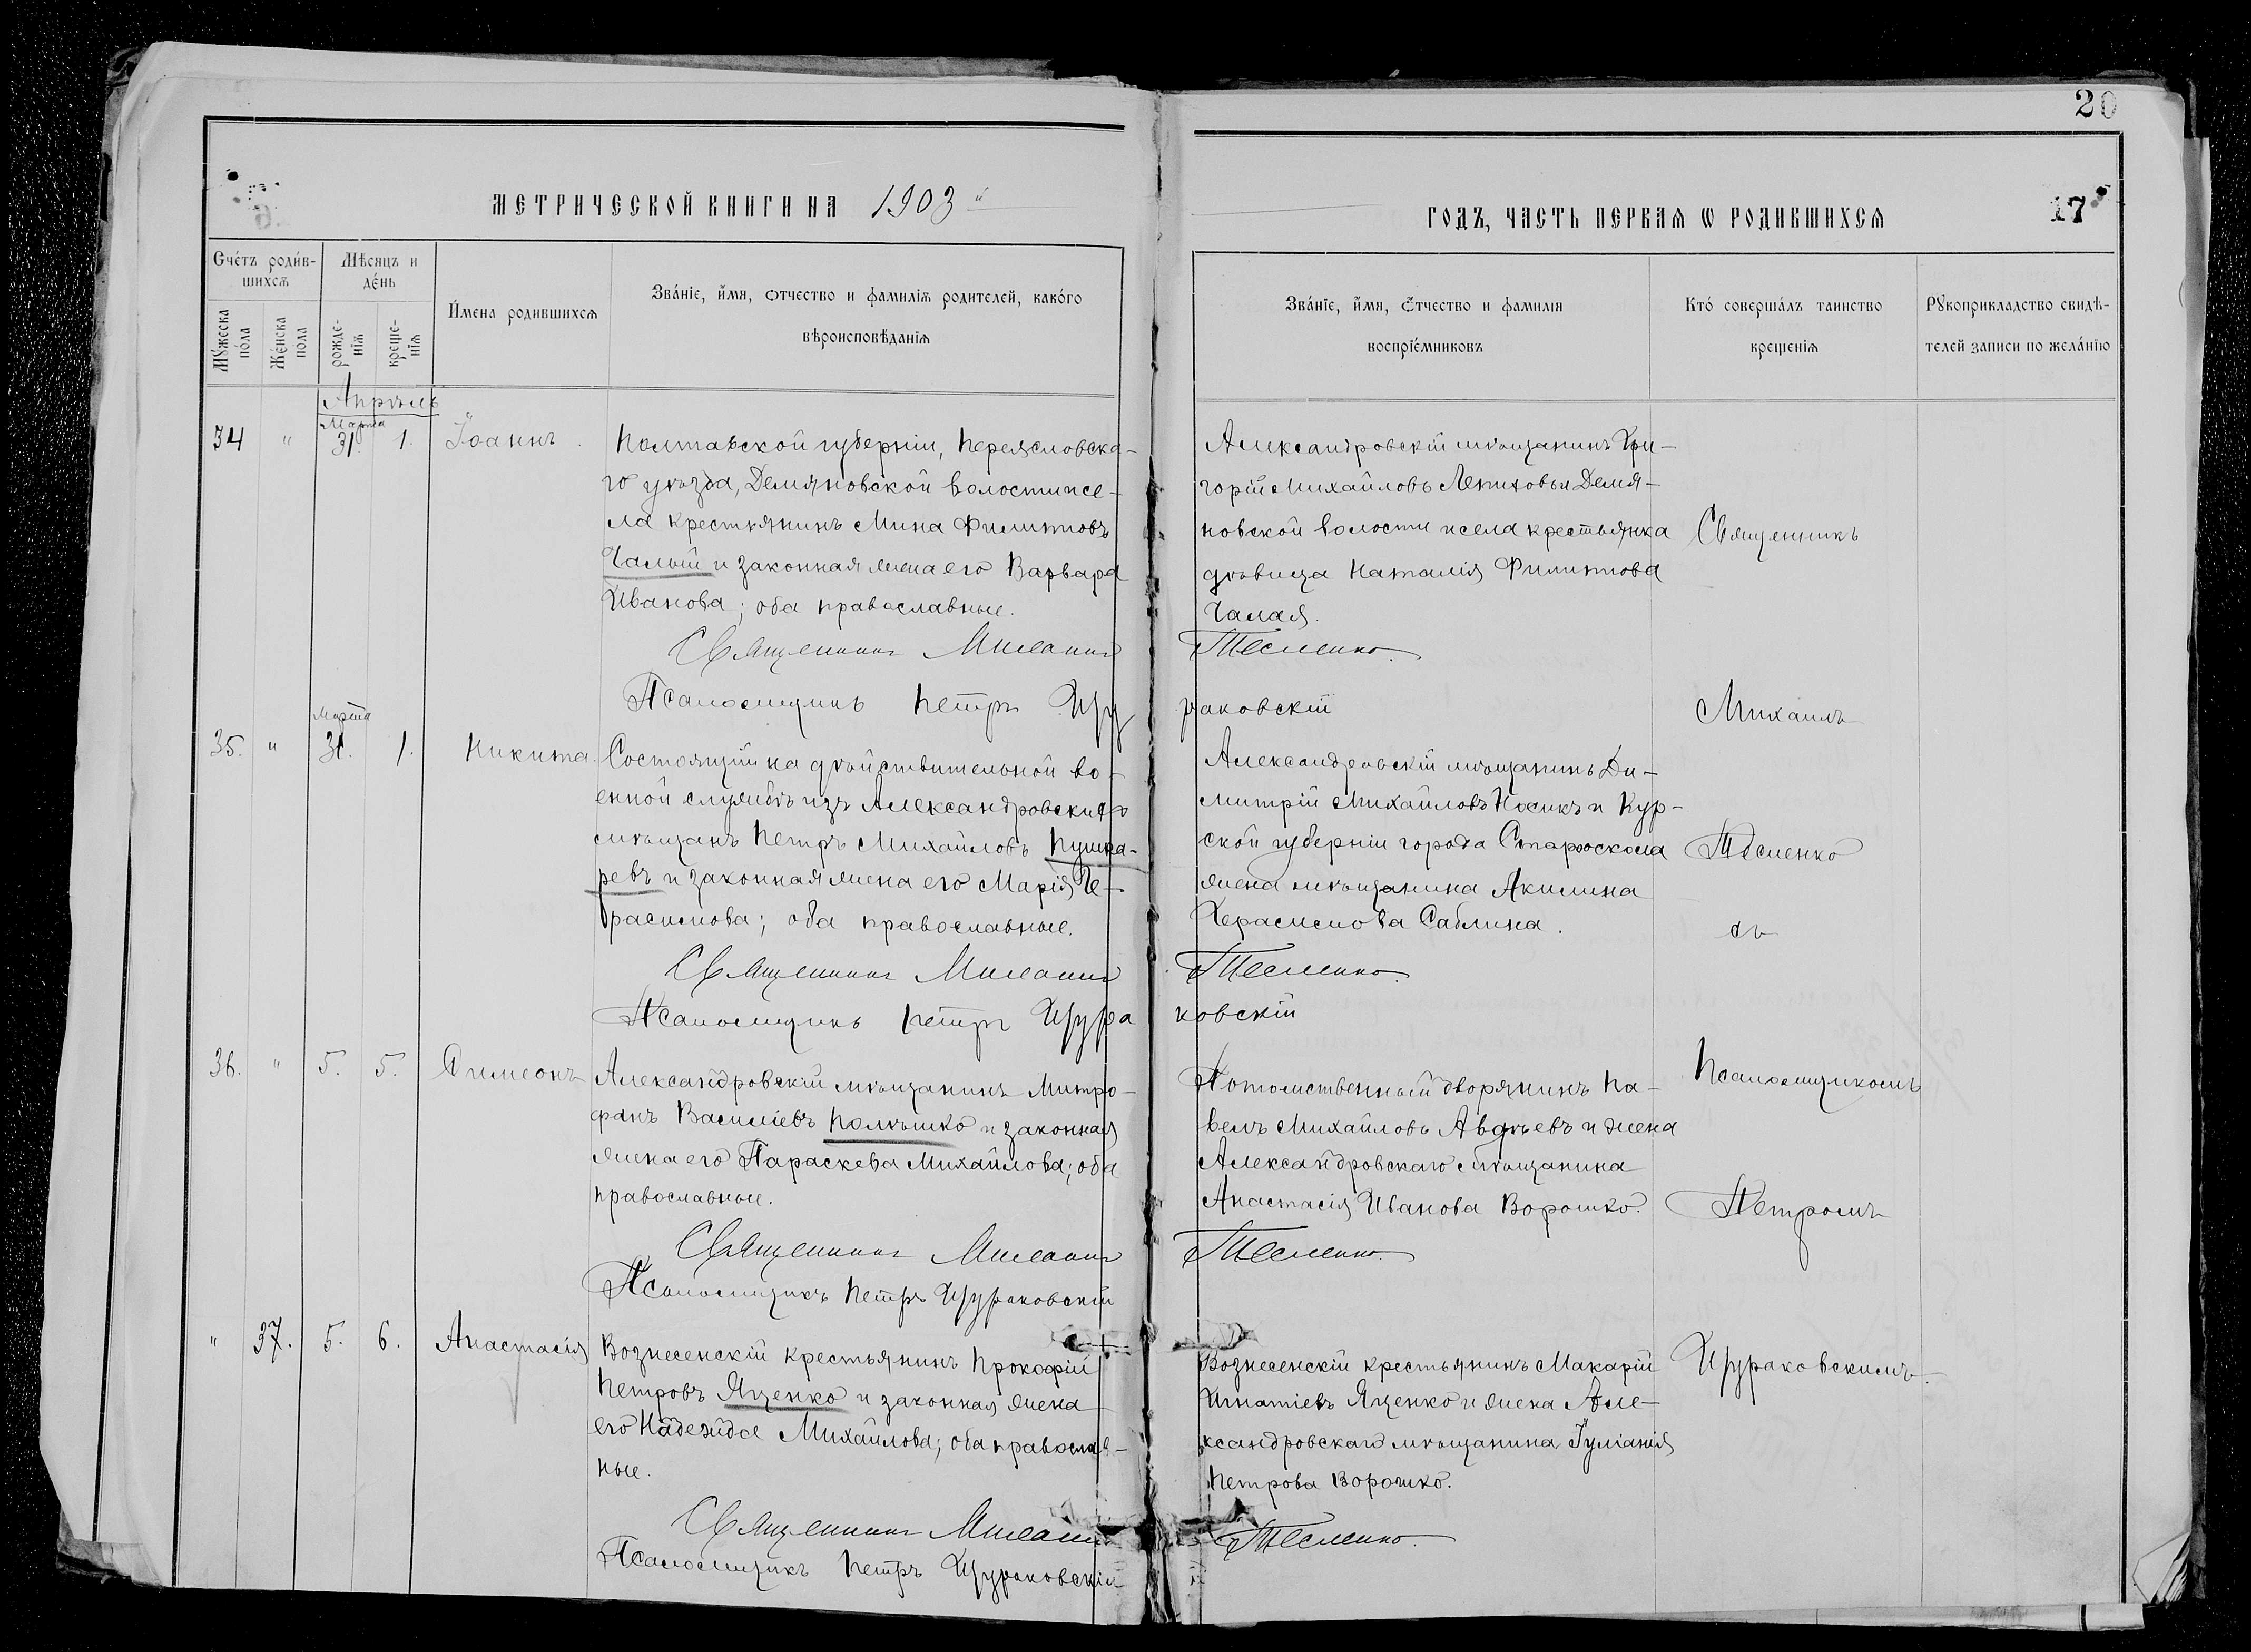 20
МЕТРИЧЕСКОЙ КНИГИ НА 1903 й
ГОДЪ, ЧАСТЬ ПЕРВАЯ Ѡ РОДИВШИХСЯ
17
Счетъ родив-
шихся
Мѣсяцъ и
день
Мужеска
пола
Женска
пола
рожде-
нія
креще-
нія
Имена родившихся
Званіе, имя, отчество и фамилія родителей, какого
вѣроисповѣданія
Званіе, имя, отчество и фамилія
воспріемниковъ
Кто совершалъ таинство
крещенія
Рукоприкладство свидѣ-
телей записи по желанію
Апрѣль
34 " Марта 31. 1. Іоаннъ.
Полтавской губерніи, Переясловска-
го уѣзда, Демяновской волости и се-
ла крестьянинъ Мина Филиповъ
Чалый и законная жена его Варвара
Иванова; оба православные.
Александровскій мѣщанинъ Гри-
горій Михайловъ Лепиховъ и Демя-
новской волости и села крестьянка
дѣвица Наталія Филипова
Чалая.
Священникъ Михаилъ Тесленко.
Псаломщикъ Петръ Щураковскій
35. " Марта 31. 1. Никита.
Состоящій на дѣйствительной во-
енной службѣ изъ Александровскихъ
мѣщанъ Петръ Михайловъ Пушка-
ревъ и законная жена его Марія Ге-
расимова; оба православные.
Александровскій мѣщанинъ Ди-
митрій Михайловъ Носикъ и Кур-
ской губерніи города Староскола
жена мѣщанина Акилина
Герасимова Саблина.
Священникъ Михаилъ Тесленко.
Псаломщикъ Петръ Щураковскій
36. " 5. 5. Симеонъ
Александровскій мѣщанинъ Митро-
фанъ Василіевъ Полѣшко и законная
жена его Параскева Михайлова; оба
православные.
Потомственный дворянинъ Па-
велъ Михайловъ Авдѣевъ и жена
Александровскаго мѣщанина
Анастасія Иванова Ворошко.
Священникъ Михаилъ Тесленко.
Псаломщикъ Петръ Щураковскій
" 37. 5. 6. Анастасія
Вознесенскій крестьянинъ Прокофій
Петровъ Яценко и законная жена
его Надежда Михайлова; оба православ-
ные.
Вознесенскій крестьянинъ Макарій
Игнатіевъ Яценко и жена Але-
ксандровскаго мѣщанина Іуліанія
Петрова Ворошко.
Священникъ Михаилъ Тесленко.
Псаломщикъ Петръ Щураковскій
Священникъ
Михаилъ
Тесленко
съ
Псаломщикомъ
Петромъ
Щураковскимъ.